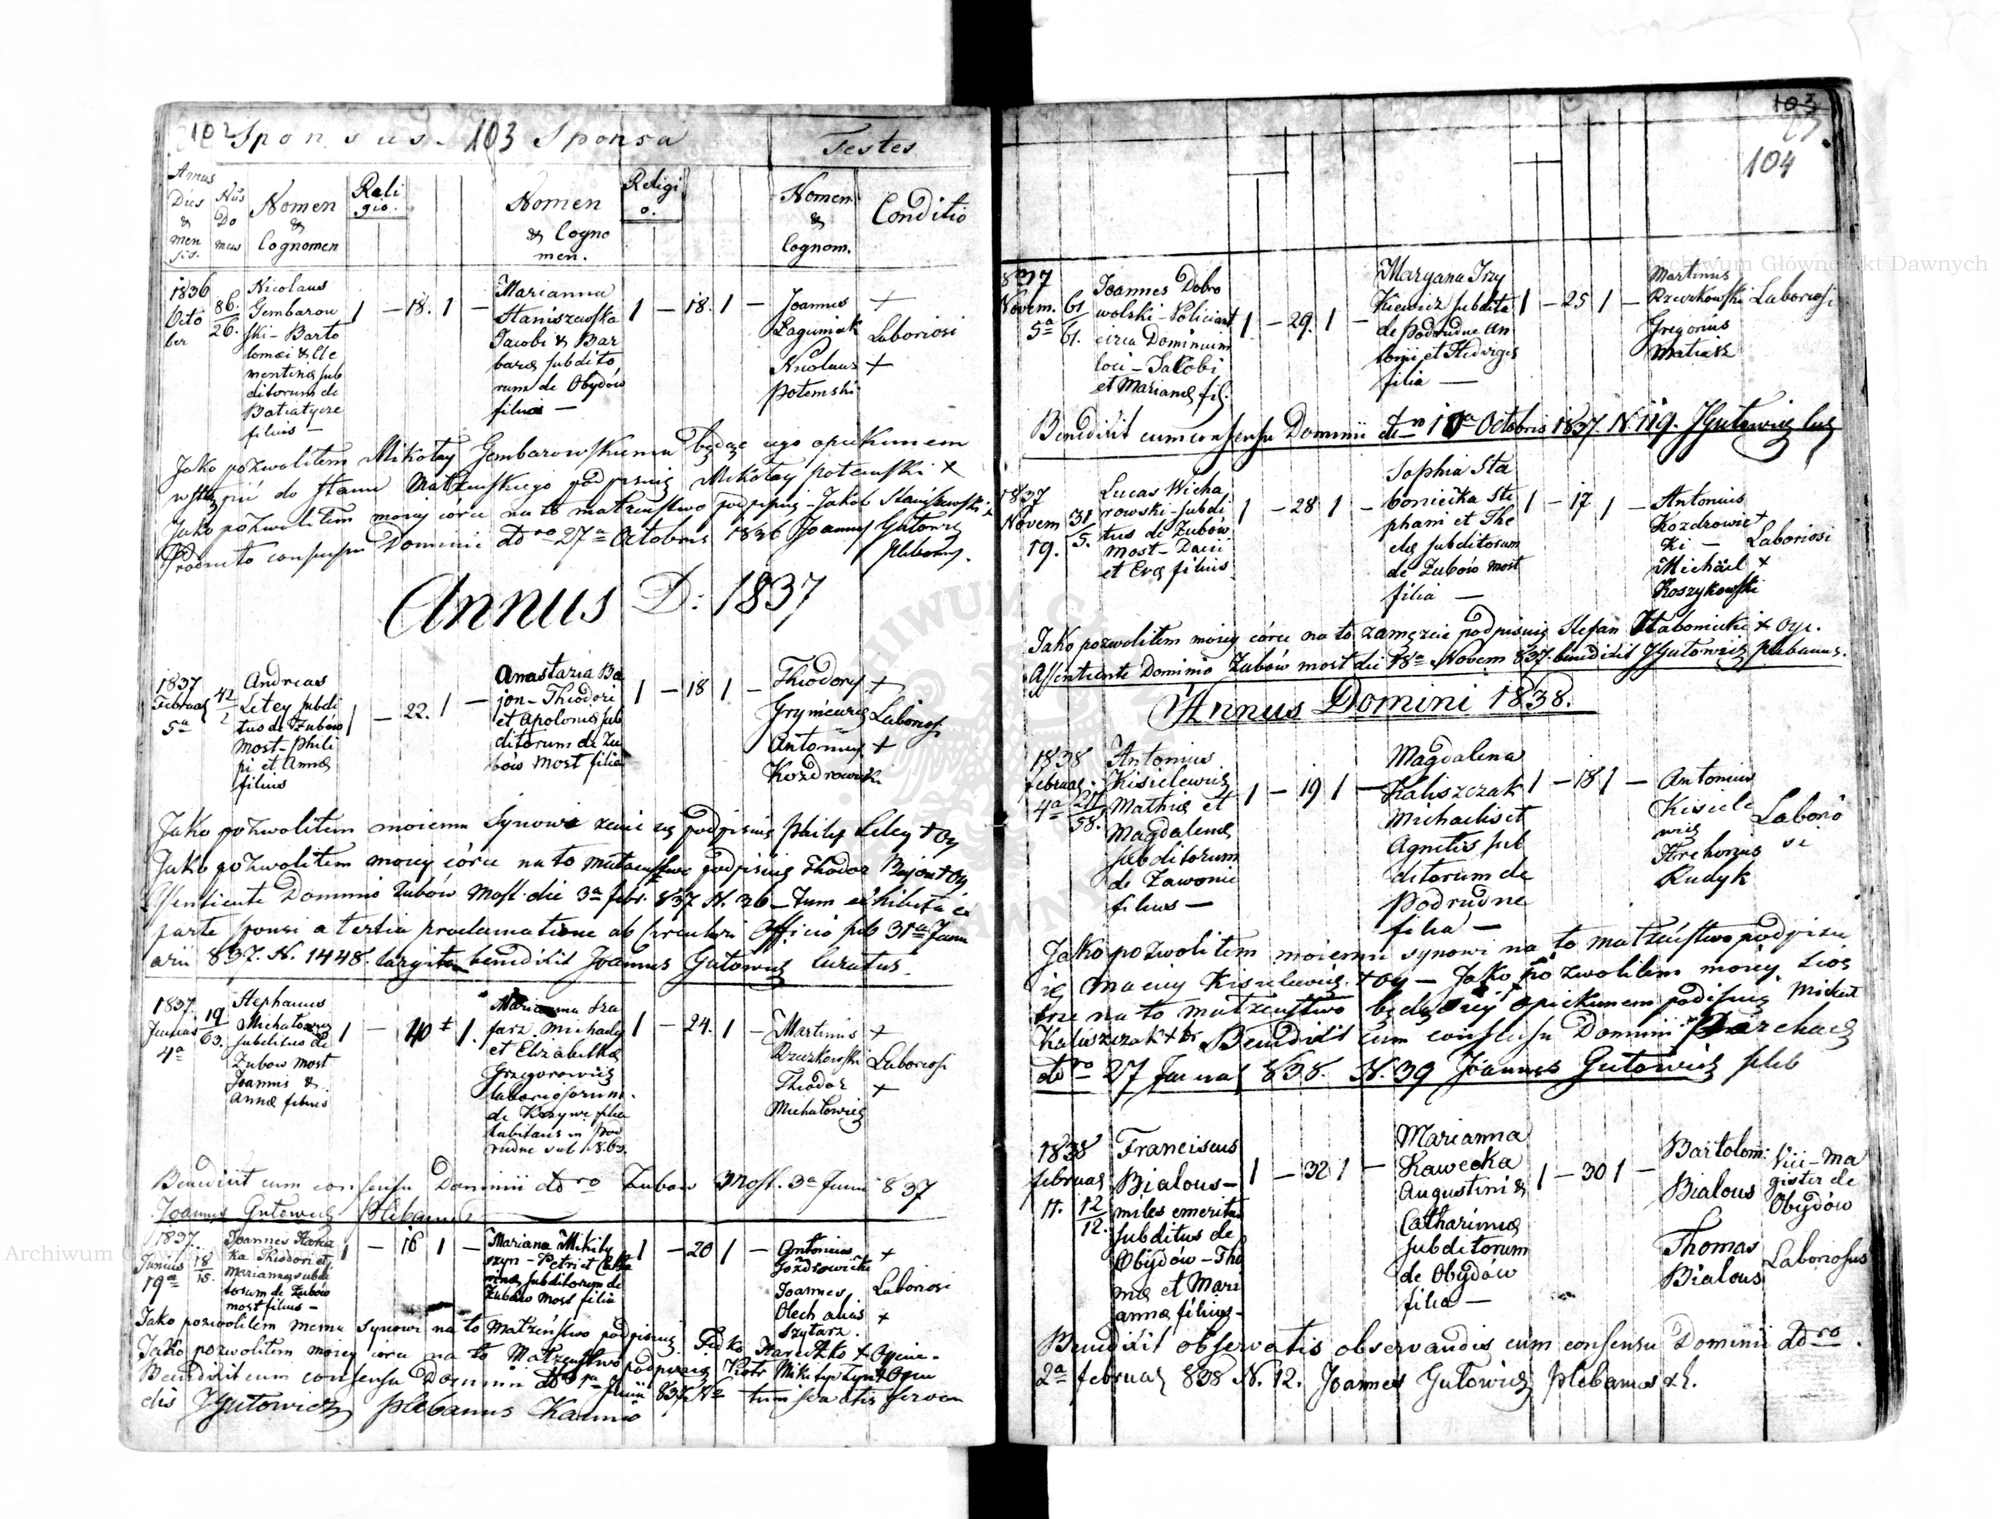 102 Sponsus. 103 Sponsa Testes
Annus Dies & men sis.
Nus Do mus
Nomen & Cognomen
Reli gio.
Nomen & Cogno men.
Religi o.
Nomen & Cognom.
Conditio
1836 Octo ber
86. 26.
Nicolaus
Gembarow
ski - Barto
lomei & Cle
mentinæ sub
ditorum de
Batiatycze
filius -
1 - 18. 1 -
Marianna
Staniszewska
Jacobi & Bar
baræ subdito
rum de Obydów
filia -
1 - 18. 1 -
Joannes +
Łaguniak
Nicolaus +
Potemski
Laboriosi
Jako pozwolitem Mikołay Gembarowskiemu będąc jego opiekunem
wstąpić do stanu Małżeńskiego podpisuię Mikołay Potemski +
Jako pozwolitem moiey córce na to małżeństwo podpisuię Jakob Staniszewski +
Producto consensu Dominii ddro 27a Octobris 1836 Joannes Gutowicz
Plebanus.
Annus D: 1837
1837
Februar
5a
42
2
Andreas
Letey subdi
tus de Zubów
Most - Phili
pi et Annæ
filius
1 - 22. 1 -
Anastazia Ba
jon - Theodori
et Apoloniæ sub
ditorum de Zu
bów Most filia
1 - 18 1 -
Theodory +
Grymewicz
Antonius +
Kozdrowicki
Laboriosi
Jako pozwolitem moiemu Synowi żenić się podpisuię Philip Letey + Oy
Jako pozwolitem moiey córce na to małżeństwo podpisuię Theodor Bajon + Oy
Assentiente Dominio Zubów Most die 3a febr. 837 N. 26 - tum exhibita ex
parte sponsi a tertia proclamatione ab Circulari Officio sub 31a Janu
arii 837. N. 1448. largita benedixit Joannes Gutowicz Curatus.
1837.
Junius
4a
19
63.
Stephanus
Michałowicz
subditus de
Zubow most
Joannis &
Annæ filius
1 - 40 1.
Marianna Sza
farz Michaely
et Elizabethæ
Grzegorowicz
laboriosorum.
de Krzywe filia
habitans in Pod
rudne sub N. 63.
1 - 24. 1 -
Martinus +
Rzeczkowski
Theodor +
Michałowicz
Laboriosi
Benedixit cum consensu Dominii ddro Zubow Most. 3a Junii 837
Joannes Gutowicz Plebanus
1837.
Junius
19a
18
15.
1 - 18 1 -
Mariana Mikity
szyn - Petri et Catha
rinæ subditorum de
Zubów Most filia
1 - 20 1 -
Antonius +
Gozdrowicki
Joannes
Olech alias +
Szytarz.
Laboriosi
Jako pozwolitem memu Synowi na to Małżeństwo podpisuię
Jako pozwolitem moiey corce na to Małżeństwo podpisuię Piotr Mikityszyn + Oyciec
Benedixit cum consensu Dominii
dis JGutowicz Plebanus Kamio
103
104
837
Novem.
5a
61
61.
Joannes Dobro
wolski - Policiant
circa Dominium
loci - Jakobi
et Marianæ fil.
1 - 29. 1 -
Maryana Trzy
Kiewicz subdita
de Podrudne An
tonii et Hedvigis
filia -
1 - 25 1 -
Martinus
Rzeczkowski
Gregorius
Matiasz
Laboriosi
Benedixit cum consensu Dominii ddro 10a Octobris 1837. N. 119. JGutowicz
1837
Novem
19.
31
5.
Lucas Wicha
rowski - subdi
tus de Zubów
Most - Dani
et Evæ filius.
1 - 28 1 -
Sophia Sta
boniecka Ste
phani et The
clæ subditorum
de Zubów most
filia -
1 - 17. 1 -
Antonius
Kozdrowic +
ki -
Michael +
Koszykowski
Laboriosi
Jako pozwolitem moiey córce na to zamęzcie podpisuię Stefan Stabonicki + Oyc.
Assentiente Dominio Zubów most die 18a Novem 837. benedixit JGutowicz Plebanus.
Annus Domini 1838.
1838
februar.
4a
58.
Antonius
Kisielewicz
Mathiæ et
Magdalenæ
subditorum
de Zawonie
filius -
1 - 19 1 -
Magdalena
Kaliszczak
Michaelis et
Agnetis sub
ditorum de
Podrudne
filia -
1 - 18 1 -
Antonius
Kisiele
wicz
Hrehorius
Rudyk
Laborio
si
Jako pozwolitem moiemu synowi na to małżeństwo podpisu
ię Maciey Kisielewicz + Oy - Jako pozwolitem moiey Sios
trze na to małżeństwo będąc iey opiekunem podisuię Michał
Kaliszczak + Br. Benedixit cum consensu Dominii Parchacz
ddro 27 Januar 838. N. 39 Joannes Gutowicz Pleb
1838
februar
11.
12
12.
Franciscus
Bialous -
miles emeritus
subditus de
Obydów - Tho
mæ et Mari
annæ filius -
1 - 32 1 -
Marianna
Kawecka
Augustini &
Catharinæ
subditorum
de Obydów
filia -
1 - 30 1 -
Bartolom:
Bialous
Thomas
Bialous
Vici - Ma
gister de
Obydów
Laboriosus
Benedixit observatis observandis cum consensu Dominii ddro
2a februar 838 N. 12. Joannes Gutowicz Plebanus
Archiwum Główne Akt Dawnych